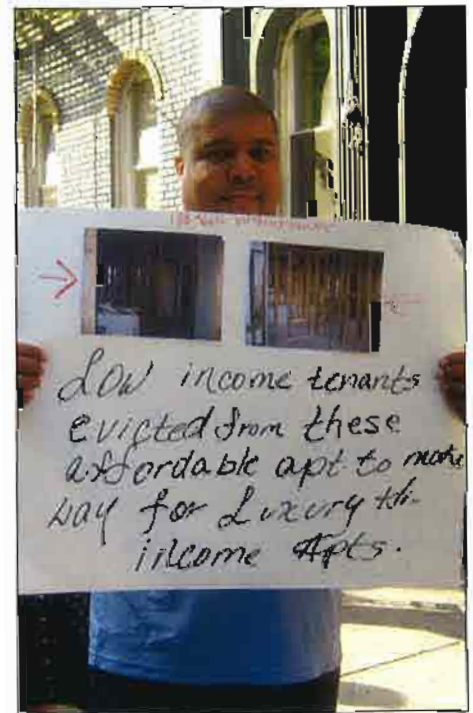 Low income tenants
evicted from these
affordable apt to make
way for Luxury Hi-
income Apts.